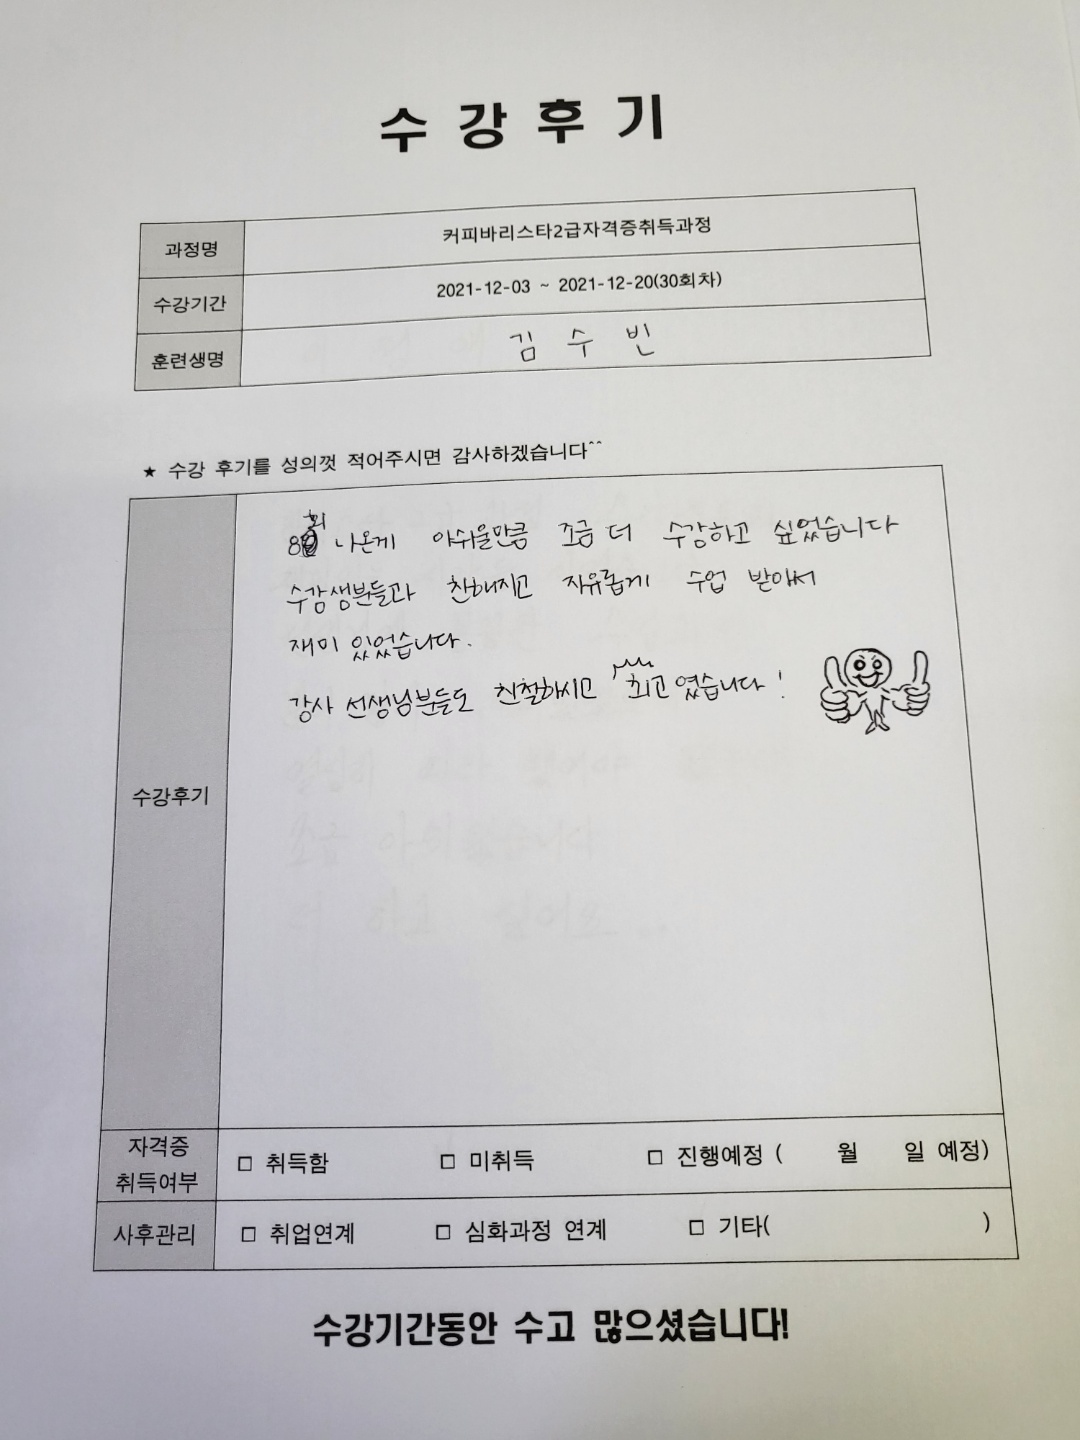 수강후기
과정명 커피바리스타2급자격증취득과정
수강기간 2021-12-03 ~ 2021-12-20(30회차)
훈련생명 김수빈
★ 수강 후기를 성의껏 적어주시면 감사하겠습니다^^
수강후기
8회 나온게 아쉬울만큼 조금 더 수강하고 싶었습니다
수강생분들과 친해지고 자유롭게 수업 받아서
재미 있었습니다.
강사 선생님분들도 친절하시고 최고였습니다!
자격증
취득여부 □ 취득함 □ 미취득 □ 진행예정 ( 월 일 예정)
사후관리 □ 취업연계 □ 심화과정 연계 □ 기타( )
수강기간동안 수고 많으셨습니다!